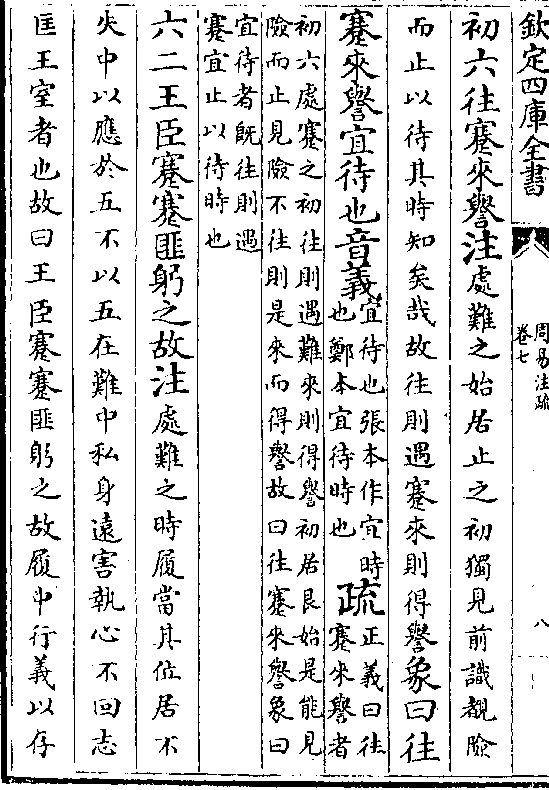 欽定四庫全書
周易注疏
卷七
八
初六往蹇來譽注處難之始居止之初獨見前識覩險
而止以待其時知矣哉故往則遇蹇來則得譽象曰往
蹇來譽宜待也音義宜待也張本作宜時
也鄭本宜待時也疏正義曰往
蹇來譽者
初六處蹇之初往則遇難來則得譽初居艮始是能見
險而止見險不往則是來而得譽故曰往蹇來譽象曰
宜待者旣往則遇
蹇宜止以待時也
六二王臣蹇蹇匪躬之故注處難之時履當其位居不
失中以應於五不以五在難中私身遠害執心不回志
匡王室者也故曰王臣蹇蹇匪躬之故履中行義以存